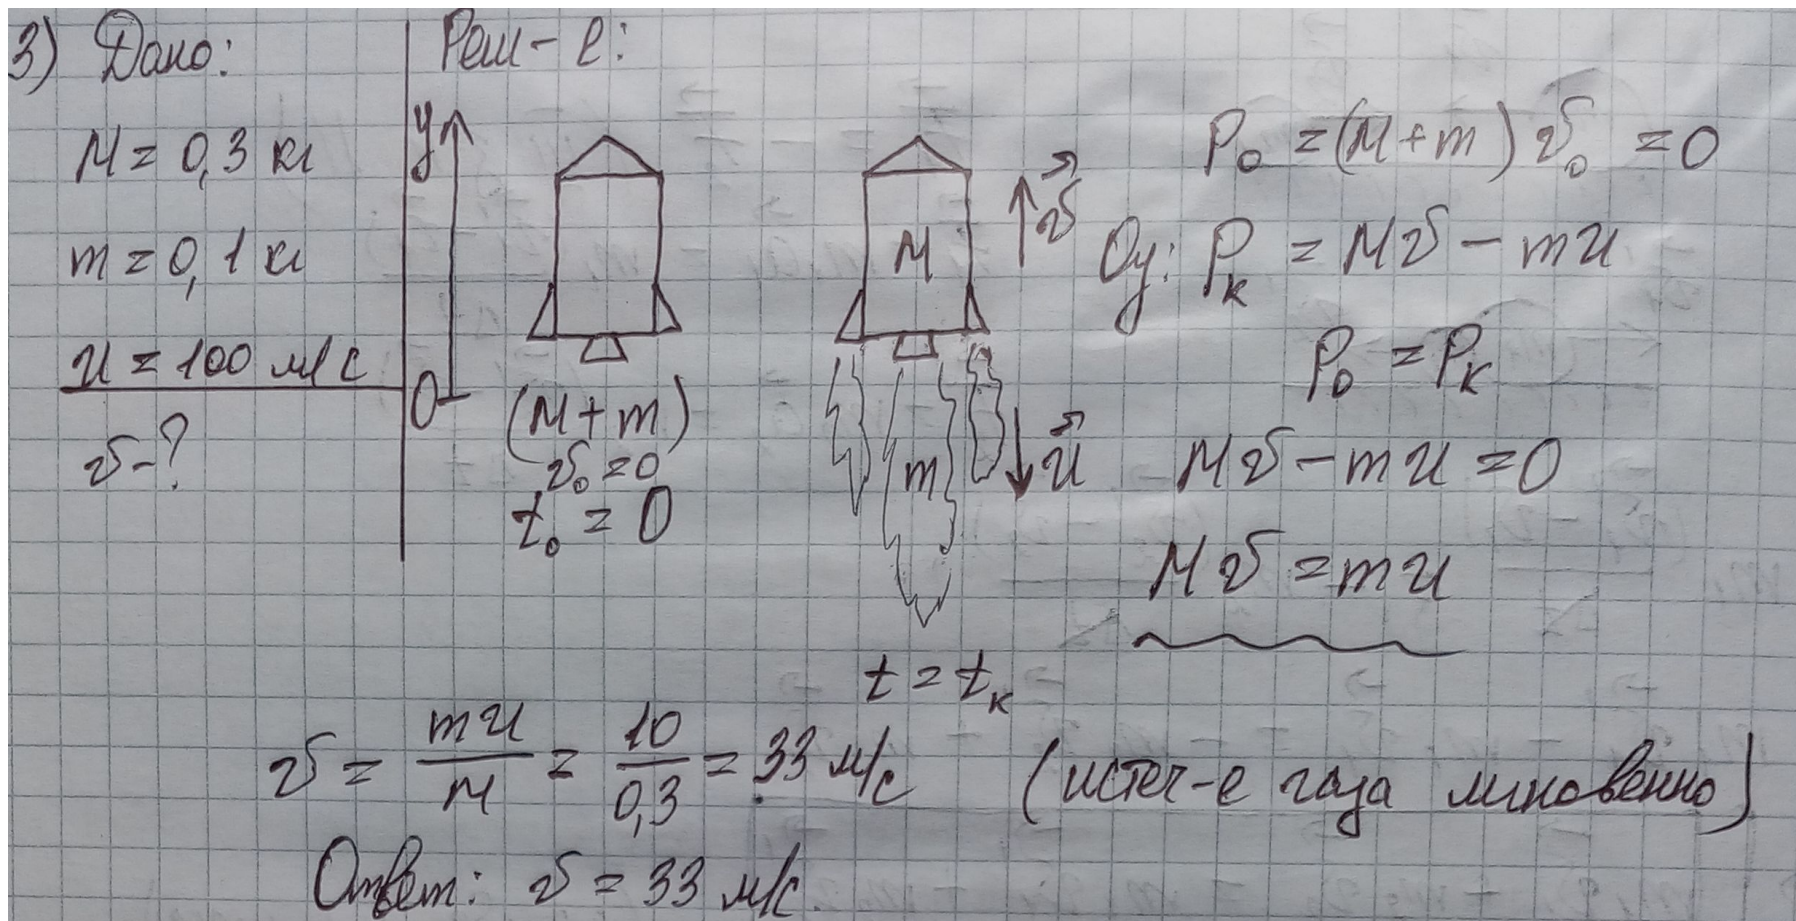 3) Дано:
M = 0,3 кг
m = 0,1 кг
u = 100 м/с
v - ?
Реш-е:
y
O
(M + m)
v₀ = 0
t₀ = 0
M
v⃗
m
u⃗
t = tₖ
P₀ = (M + m) v₀ = 0
Oy: Pₖ = Mv - mu
P₀ = Pₖ
Mv - mu = 0
Mv = mu
v = mu/M = 10/0,3 = 33 м/с
(истеч-е газа мгновенно)
Ответ: v = 33 м/с.